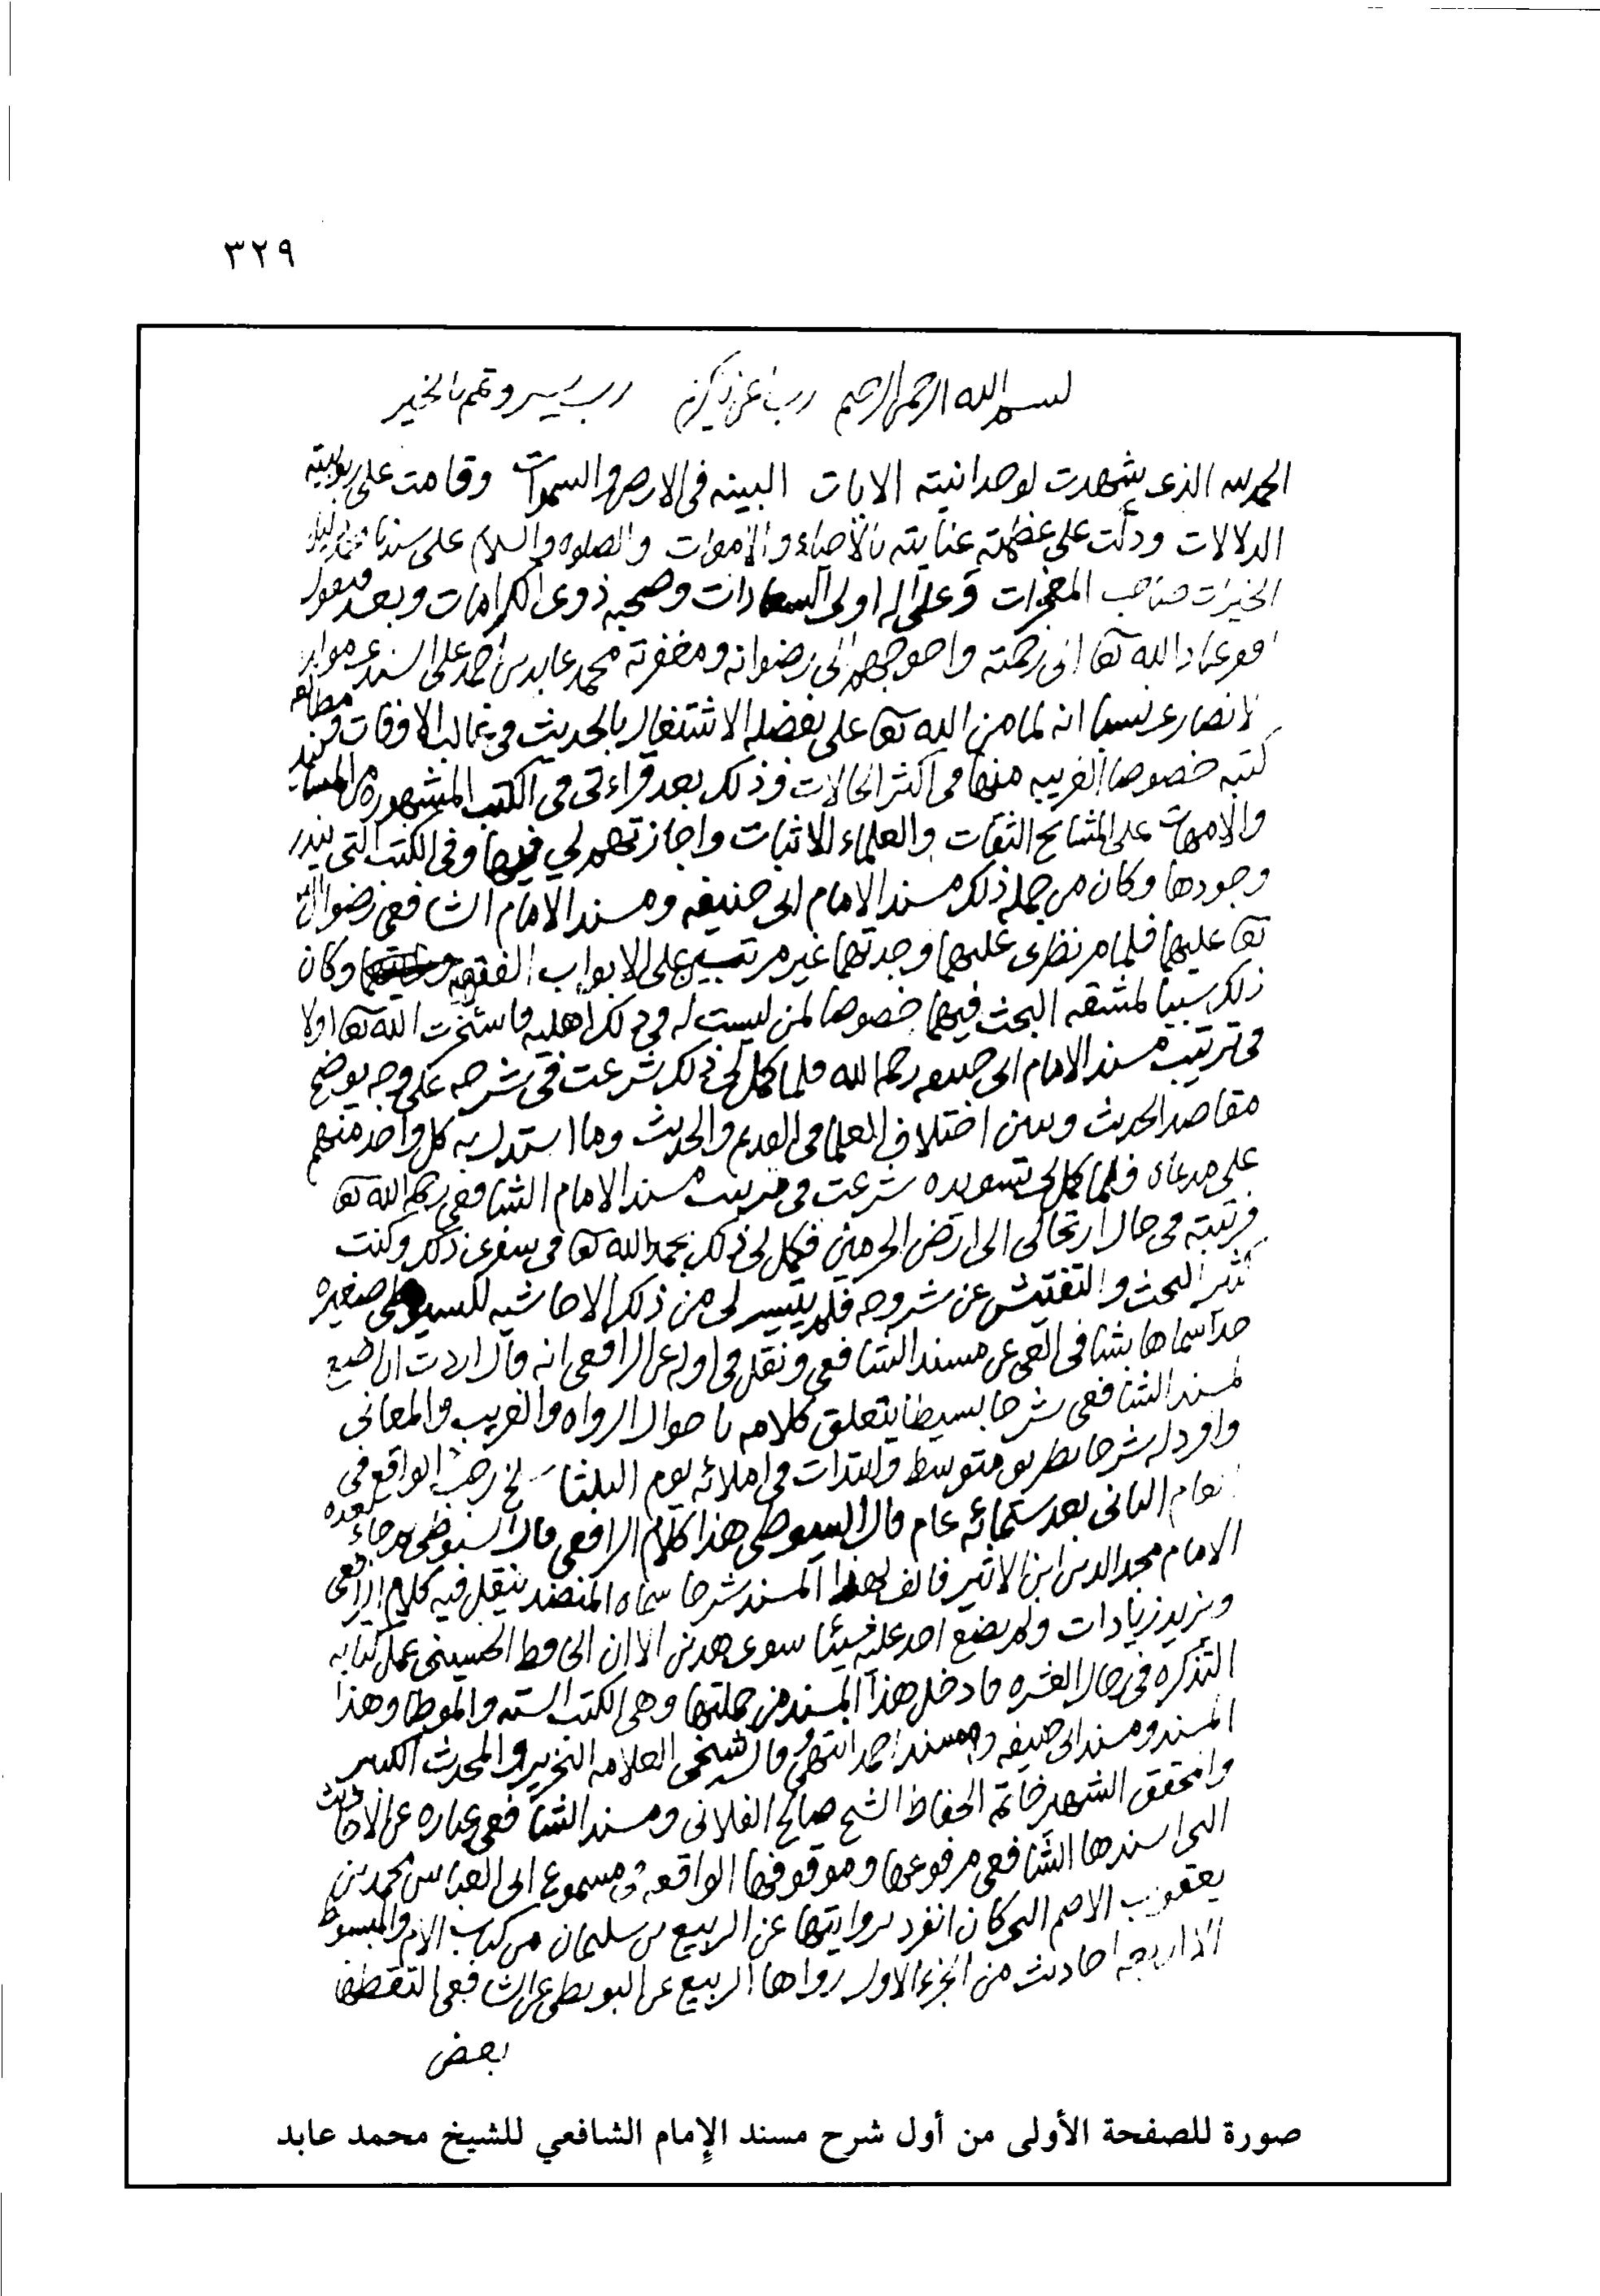 ٣٢٩
بسم الله الرحمن الرحيم رب يسر وتمم بالخير
الحمد لله الذى شهدت لوحدانيته الايات البينه فى الارض والسموات وقامت على ربوبيته
الدلالات ودلت على عظمته عنايته بالاحياء والاموات والصلوه والسلام على سيدنا محمد
الخيرات صاحب المعجزات وعلى اله اولى السعادات وصحبه ذوى الكرامات وبعد فيقول
عباد الله تعا الى رحمته واحوجهم الى رضوانه ومغفرته محمد عابد بن احمد على السندى
الانصارى نسبا انه لما من الله تعا على بفضله الاشتغال بالحديث فى غالب الاوقات مطالعه
كتبه خصوصا الغريبه منها فى اكثر الحالات وذلك بعد قراءتى فى الكتب المشهوره من المسانيد
والامهات على المشايخ الثقات والعلماء الاثبات واجازتهم لي فيها وفى الكتب التى يندر
وجودها وكان من جمله ذلك مسند الامام ابى حنيفه ومسند الامام الشافعى رضوان الله
تعا عليهما فلما مر نظرى عليهما وجدتهما غير مرتبين على الابواب الفقهيه وكان
ذلك سببا لمشقه البحث فيهما خصوصا لمن ليست له فى ذلك اهليه فاستخرت الله تعا اولا
فى ترتيب مسند الامام ابى حنيفه رحمه الله فلما كمل لى ذلك شرعت فى شرحه على وجه يوضح
مقاصد الحديث وبين اختلاف العلما فى القديم والحديث وما استدل به كل واحد منهم
على مدعاه فلما كمل لى تسويده شرعت فى ترتيب مسند الامام الشافعى رحمه الله تعا
فرتبته فى حال ارتحالى الى ارض الحرمين فكمل لى ذلك بحمد الله تعا فى سفرى ذلك وكنت
كثير البحث والتفتيش عن شروحه فلم يتيسر لى من ذلك الا حاشيه للسيوطى صغيره
جدا سماها بشافى العى عن مسند الشافعى ونقل فى اوله عن الرافعى انه قال اردت ان اضع
لمسند الشافعى شرحا بسيطا يتعلق كلامه باحوال الرواه والغريب والمعانى
شرحا بطريق متوسط وابتدات فى املائه يوم الثلثا سلخ رجب الواقع فى
العام الثانى بعد ستمائه عام قال السيوطى هذا كلام الرافعى قال السيوطى وجاء بعده
الامام مجد الدين ابن الاثير فالف لهذا المسند شرحا سماه ينقل فيه كلام الرافعى
ويزيد زيادات ولم يضع احد عليه شيئا سوى هدين الا ان الحسينى عمل كتابه
التذكره فى رجال العشره فادخل هذا المسند من جملتها وهى الكتب السته والموطا وهذا
المسند ومسند ابى حنيفه ومسند احمد انتهى وقال شيخى العلامه النحرير والمحدث الكبير
والمحقق الشهير خاتمه الحفاظ الشيخ صالح الفلانى ومسند الشافعى عباره عن الاحاديث
التى اسندها الشافعى مرفوعها وموقوفها الواقعه فى مسموع ابى العباس محمد بن
يعقوب الاصم التى كان انفرد بروايتها عن الربيع بن سليمان من كتاب الام والمبسوط
الا اربعه احاديث من الجزء الاول رواها الربيع عن البويطى عن الشافعى التقطها
بعض
صورة للصفحة الأولى من أول شرح مسند الإمام الشافعي للشيخ محمد عابد